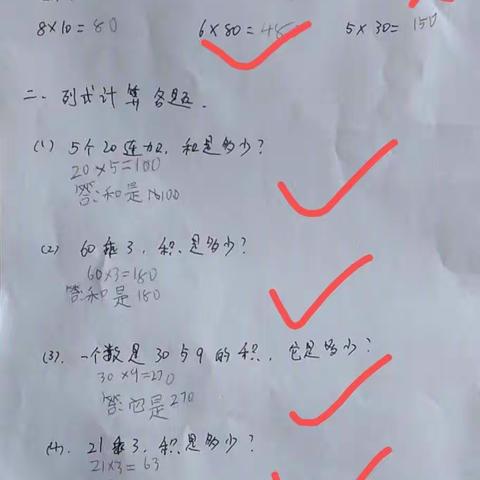 8×10=80 6×80=48 5×30=150
二、列式计算各题.
(1) 5个20连加,和是多少?
20×5=100
答:和是100
(2) 60乘3,积是多少?
60×3=180
答:和是180
(3). 一个数是30与9的积,它是多少?
30×9=270
答:它是270
(4). 21乘3,积是多少?
21×3=63